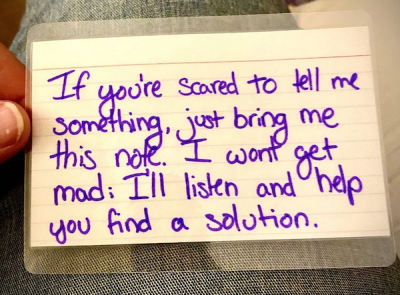 If you're scared to tell me
something, just bring me
this note. I wont get
mad; I'll listen and help
you find a solution.